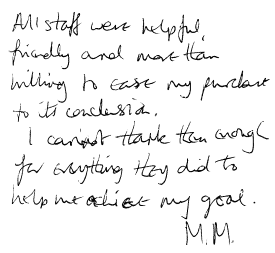 All staff were helpful,
friendly and more than
willing to ease my purchase
to its conclusion.
I cannot thank them enough
for everything they did to
help me achieve my goal.
M.M.